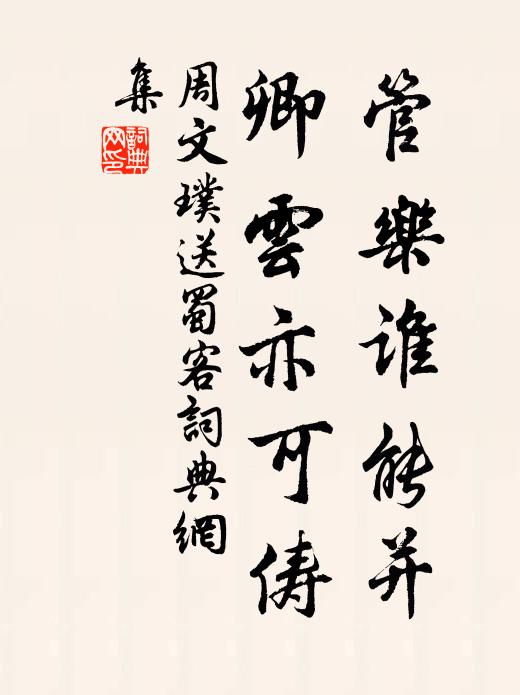 管樂誰能并
卿雲亦可儔
周文璞送蜀客詞典網
集
詞典網印